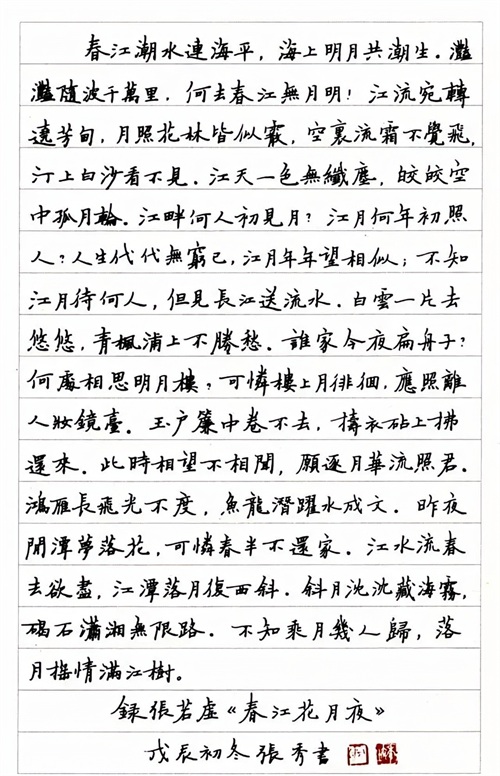 春江潮水連海平，海上明月共潮生．灩
灩隨波千萬里．何去春江無月明！江流宛轉
遶芳甸，月照花林皆似霰，空裏流霜不覺飛，
汀上白沙看不見．江天一色無纖塵，皎皎空
中孤月輪．江畔何人初見月？江月何年初照
人？人生代代無窮已，江月年年望相似；不知
江月待何人，但見長江送流水．白雲一片去
悠悠，青楓浦上不勝愁．誰家今夜扁舟子？
何處相思明月樓？可憐樓上月徘徊，應照離
人妝鏡臺．玉户簾中卷不去，擣衣砧上拂
還來．此時相望不相聞，願逐月華流照君．
鴻雁長飛光不度，魚龍潛躍水成文．昨夜
閒潭夢落花，可憐春半不還家．江水流春
去欲盡，江潭落月復西斜．斜月沈沈藏海霧，
碣石瀟湘無限路．不知乘月幾人歸，落
月搖情滿江樹。
錄張若虛《春江花月夜》
戊辰初冬張秀書